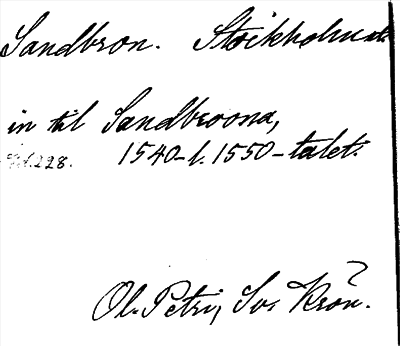 Sandbron. Stockholm
in til Sandbroona,
228. 1540- l. 1550-talet.
Ol. Petri, Sv. Krön.